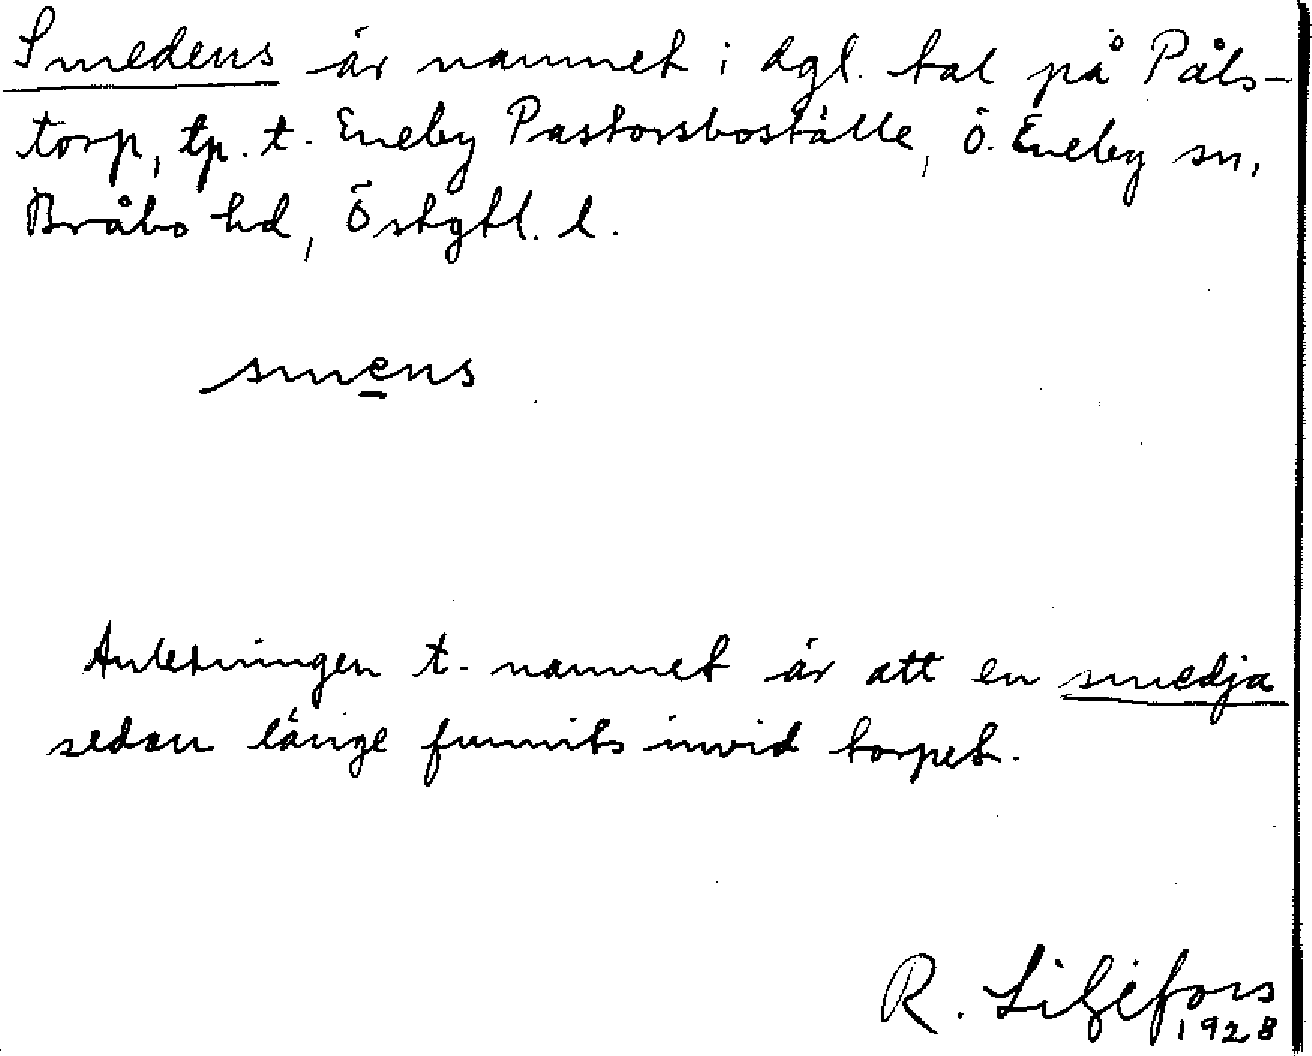 Smedens är namnet i dgl. tal på Påls-
torp, tp. t. Eneby Pastorsboställe, Ö. Eneby sn,
Bråbo hd, Östgtl. l.
smens
Anledningen t. namnet är att en smedja
sedan länge funnits invid torpet.
R. Liljefors
1928